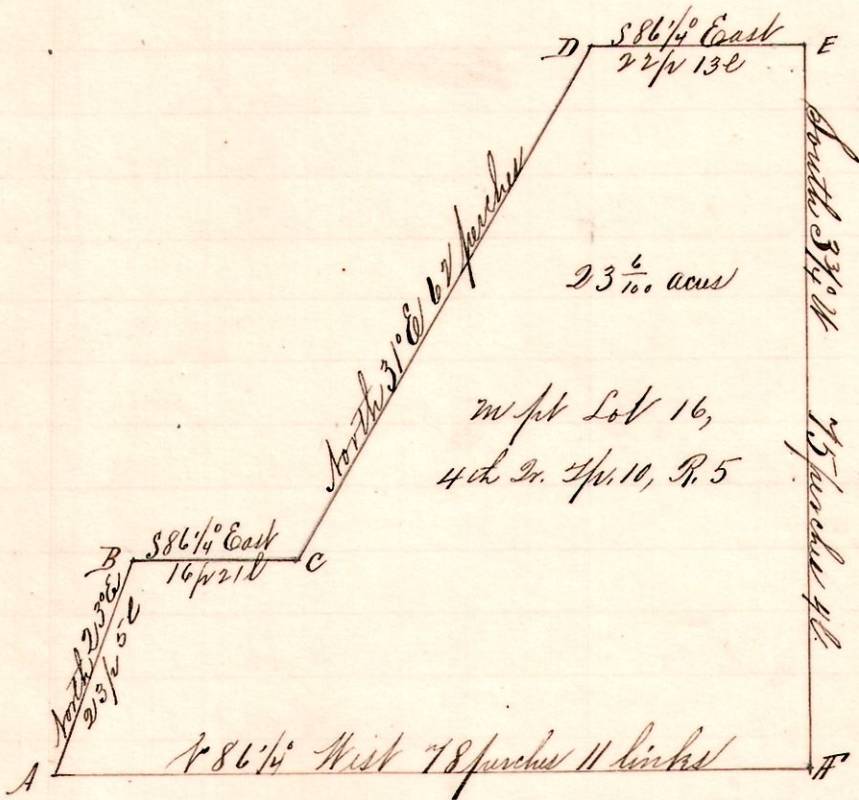 D S 86 1/4° East E
22 p 13 l
South 3 3/4° W 75 perches 4 l.
North 31° E 62 perches
23 6/100 acres
m pt Lot 16,
4th Qr. Tp. 10, R. 5
B S 86 1/4° East C
16 p 21 l
North 23° E
23 p 5 l
A N 86 1/4° West 78 perches 11 links F